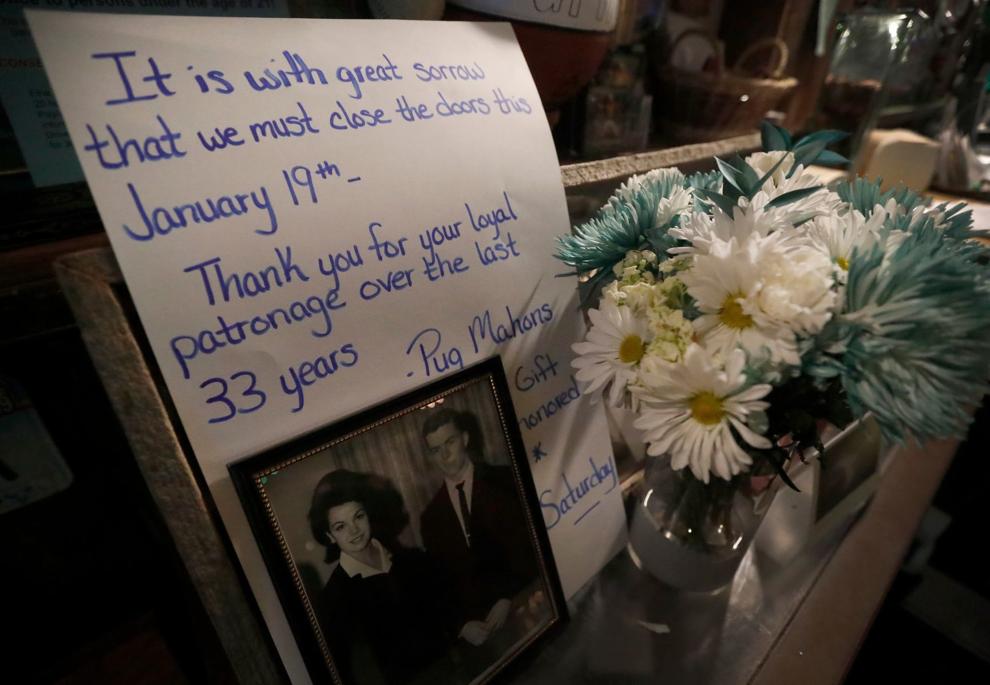 to persons under the age of 21!
It is with great sorrow
that we must close the doors this
January 19th-
Thank you for your loyal
patronage over the last
33 years
-Pug Mahons
Gift
honored
*
Saturday